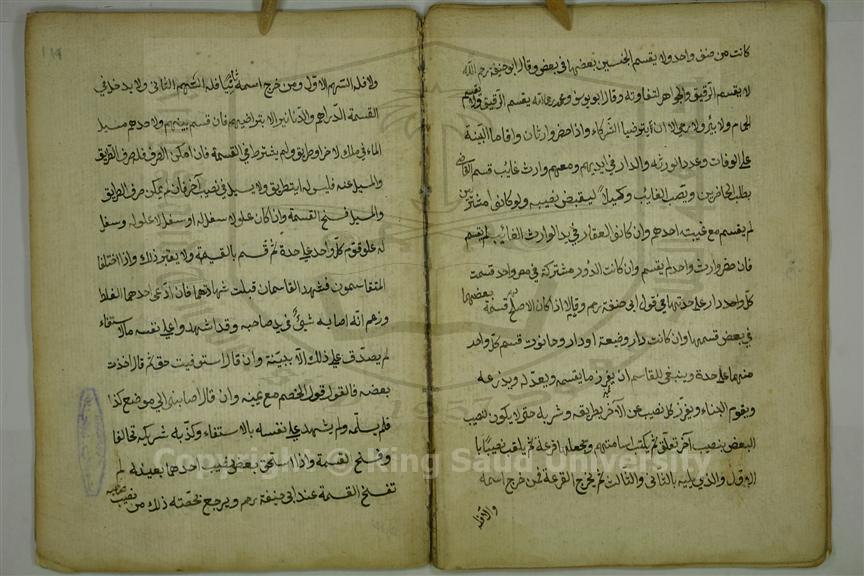 كانت من صنف واحد ولا يقسم الجنسين بعضها في بعض وقال ابو حنيفة رحمه الله
لا يقسم الرقيق والجواهر لتفاوته وقال ابو يوسف ومحمد رحمهما الله يقسم الرقيق ولا يقسم
حمام ولا بئر ولا رحى الا ان يتراضيا الشركاء واذا حضر وارثان واقاما البينة
على الوفات وعدد الورثة والدار في ايديهم ومعهم وارث غايب قسم القاضي
بطلب الحاضرين وينصب للغايب وكيلاً ليقبض نصيبه ولو كانوا مشترين
لم يقسم مع غيبته احدهم وان كان العقار في يد الوارث الغايب لم يقسم
فان حضر وارث واحد لم يقسم وان كانت الدور مشتركة في مصر واحد قسمت
كل واحد دار على حدتها في قول ابى حنفة رحم وقالا اذا كان الاصلح لهم قسمة بعضها
في بعض قسمها وان كانت دار وضيعة او دار وحانوت قسم كل واحد
منهما على حدة وينبغى للقاسم ان يفرز ما يقسمه ويعدله ويذرعه
ويقوم البناء ويفرز كل نصيب عن الآخر بطريقه وشربه حتى لا يكون لنصيب
البعض بنصيب آخر تعلق ثم يكتب اسامتهم ويجعلها قرعة ثم يلقب نصيبًا با
الاول والذى يليه بالثانى والثالث ثم يخرج القرعة فمن خرج اسمه
ولا فله
ولا فله السهم الاول ومن خرج اسمه ثانيًا فله السهم الثانى ولا يدخل في
القسمة الدراهم والدنانير الا بتراضيهم فان قسم بينهم ولاحدهم مسيل
الماء في ملك لاخر او طريق ولم يشترط في القسمة فان امكن الصرف فله صرف الطريق
والمسيل عنه فليس له ان يتطريق ولا يسيل في نصيب آخر فان لم يمكن صرف الطريق
والمسيل فسخ القسمة وان كان علو لا سفل له او سفل لا علو له وسفل
له علو قوم كل واحد على حدة ثم قسم بالقيمة ولا يعتبر ذلك واذا اختلفا
المتقاسمون فشهد القاسمان قبلت شهادتهما فان ادعى احدهما الغلط
وزعم انه اصابه شئ في يد صاحبه وقد اشهد واعلى نفسه مالاستفاء
لم يصدق على ذلك الا ببينة وان قال استوفيت حقى ثم قال اخذت
بعضه فالقول قول الخصم مع يمينه وان قال اصابنى الى موضع كذا
فلم يسلمه ولم يشهد على نفسه بالاستفاء وكذبه شريكه تحالفا
وفسخ القسمة واذا استحق بعض نصيب احدهما بعينه لم
تفسخ القسمة عند ابى حنيفة رحم ويرجع بحصته ذلك من نصيب صاحبه
Copyright © King Saud University